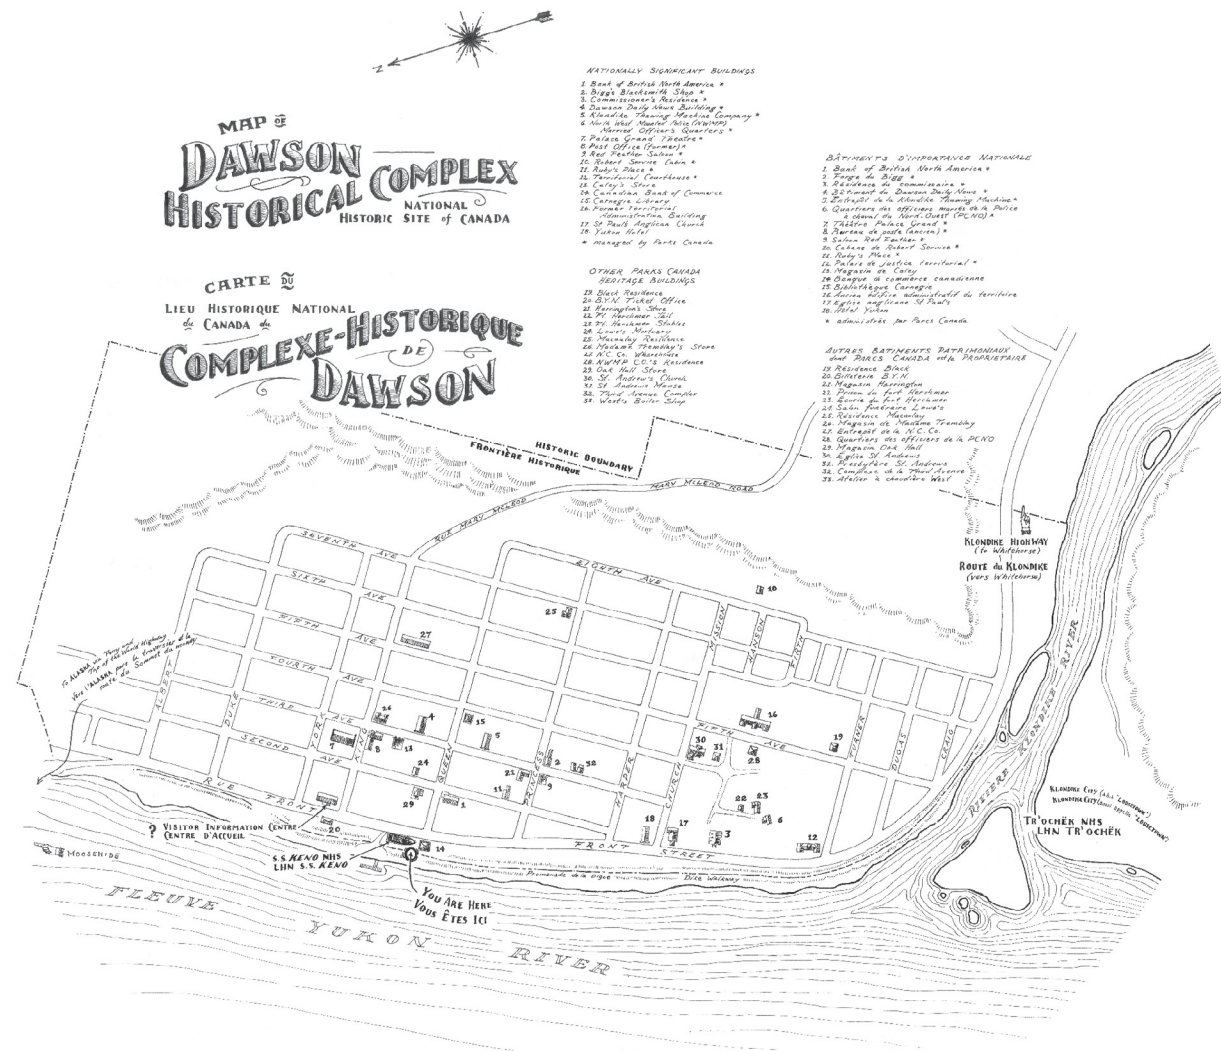 N
MAP OF
DAWSON
HISTORICAL COMPLEX
NATIONAL
HISTORIC SITE of CANADA
CARTE DU
LIEU HISTORIQUE NATIONAL
du CANADA du
COMPLEXE-HISTORIQUE
DE
DAWSON
NATIONALLY SIGNIFICANT BUILDINGS
1. Bank of British North America *
2. Bigg's Blacksmith Shop *
3. Commissioner's Residence *
4. Dawson Daily News Building *
5. Klondike Thawing Machine Company *
6. North West Mounted Police (NWMP)
Married Officer's Quarters *
7. Palace Grand Theatre *
8. Post Office (former) *
9. Red Feather Saloon *
10. Robert Service Cabin *
11. Ruby's Place *
12. Territorial Courthouse *
13. Caley's Store
14. Canadian Bank of Commerce
15. Carnegie Library
16. Former Territorial
Administration Building
17. St Paul's Anglican Church
18. Yukon Hotel
* managed by Parks Canada
OTHER PARKS CANADA
HERITAGE BUILDINGS
19. Black Residence
20. B.Y.N. Ticket Office
21. Harrington's Store
22. Ft. Herchmer Jail
23. Ft. Herchmer Stables
24. Lowe's Mortuary
25. Macaulay Residence
26. Madame Tremblay's Store
27. N.C. Co. Warehouse
28. NWMP C.O.'s Residence
29. Oak Hall Store
30. St. Andrew's Church
31. St Andrews Manse
32. Third Avenue Complex
33. West's Boiler Shop
BÂTIMENTS D'IMPORTANCE NATIONALE
1. Bank of British North America *
2. Forge du Bigg *
3. Résidence du commissaire *
4. Bâtiment du Dawson Daily News *
5. Entrepôt de la Klondike Thawing Machine *
6. Quartiers des officiers mariés de la Police
à cheval du Nord-Ouest (PCNO) *
7. Théâtre Palace Grand *
8. Bureau de poste (ancien) *
9. Saloon Red Feather *
10. Cabane de Robert Service *
11. Ruby's Place *
12. Palais de justice territorial *
13. Magasin de Caley
14. Banque de commerce canadienne
15. Bibliothèque Carnegie
16. Ancien édifice administratif du territoire
17. Eglise anglicane St Paul's
18. Hotel Yukon
* administrés par Parcs Canada
AUTRES BATIMENTS PATRIMONIAUX
dont PARCS CANADA est le PROPRIETAIRE
19. Résidence Black
20. Billeterie B.Y.N.
21. Magasin Harrington
22. Prison du fort Herchmer
23. Écurie du fort Herchmer
24. Salon funéraire Lowe's
25. Résidence Macaulay
26. Magasin de Madame Tremblay
27. Entrepôt de la N.C. Co.
28. Quartiers des officiers de la PCNO
29. Magasin Oak Hall
30. Eglise St. Andrews
31. Presbytère St. Andrews
32. Complexe de la Third Avenue
33. Atelier à chaudière West
HISTORIC BOUNDARY
FRONTIÈRE HISTORIQUE
RUE MARY MCLEOD
MARY MCLEOD ROAD
KLONDIKE HIGHWAY
(to Whitehorse)
ROUTE du KLONDIKE
(vers Whitehorse)
SEVENTH AVE
EIGHTH AVE
SIXTH AVE
FIFTH AVE
FOURTH AVE
THIRD AVE
SECOND AVE
RUE FRONT
FRONT STREET
FIFTH AVE
ALBERT
DUKE
YORK
KING
QUEEN
PRINCESS
HARPER
CHURCH
MISSION
HANSON
FIRTH
TURNER
DUGAS
CRAIG
10
25
27
26
4
15
16
7
8
13
5
30
31
28
19
24
2
32
21
9
29
1
11
22
23
6
20
18
17
3
12
14
TO ALASKA via Ferry and
Top of the World Highway
Vers l'ALASKA pare la traversier et la
route du Sommet du monde
? VISITOR INFORMATION CENTRE
CENTRE D'ACCUEIL
S.S. KENO NHS
LHN S.S. KENO
MOOSEHIDE
YOU ARE HERE
VOUS ÊTES ICI
Promenade de la Digue
Dike Walkway
RIVIÈRE KLONDIKE RIVER
KLONDIKE CITY (a.k.a. "LOUSETOWN")
KLONDIKE CITY (aussi appelé "LOUSETOWN")
TR'OCHËK NHS
LHN TR'OCHËK
FLEUVE YUKON RIVER